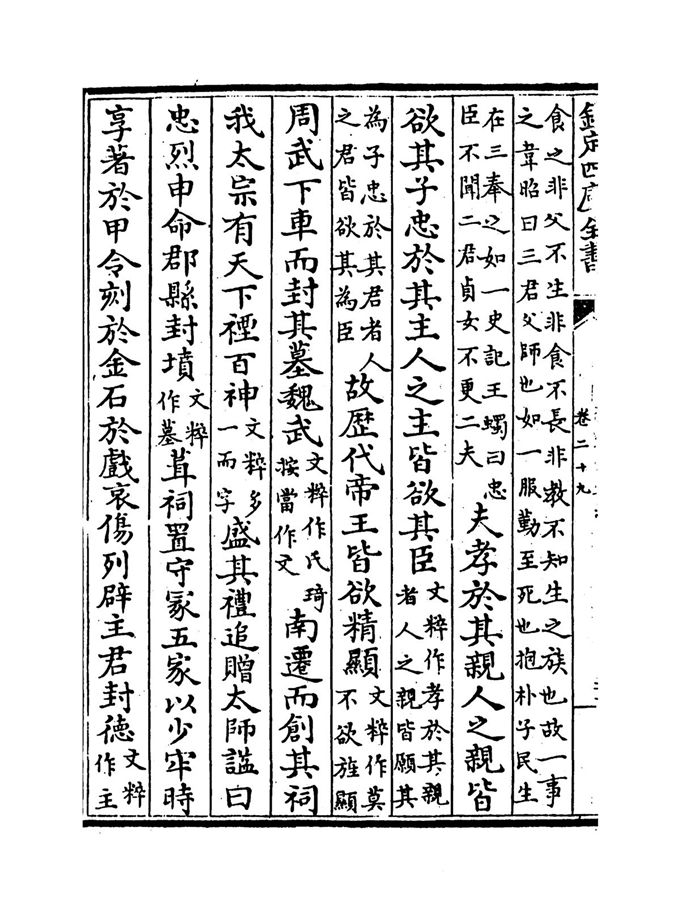 欽定四庫全書
卷二十九
食之非父不生非食不長非教不知生之族也故一事
之韋昭曰三君父師也如一服勤至死也抱朴子民生
在三奉之如一史記王蠋曰忠
臣不聞二君貞女不更二夫
夫孝於其親人之親皆
欲其子忠於其主人之主皆欲其臣
文粹作孝於其親
者人之親皆願其
為子忠於其君者人
之君皆欲其為臣
故歴代帝王皆欲精顯
文粹作莫
不欲旌顯
周武下車而封其墓魏武
文粹作氏琦
按當作文
南遷而創其祠
我太宗有天下禋百神
文粹多
一而字
盛其禮追贈太師諡曰
忠烈申命郡縣封墳
文粹
作墓
葺祠置守冢五家以少牢時
享著於甲令刻於金石於戲哀傷列辟主君封德
文粹
作主